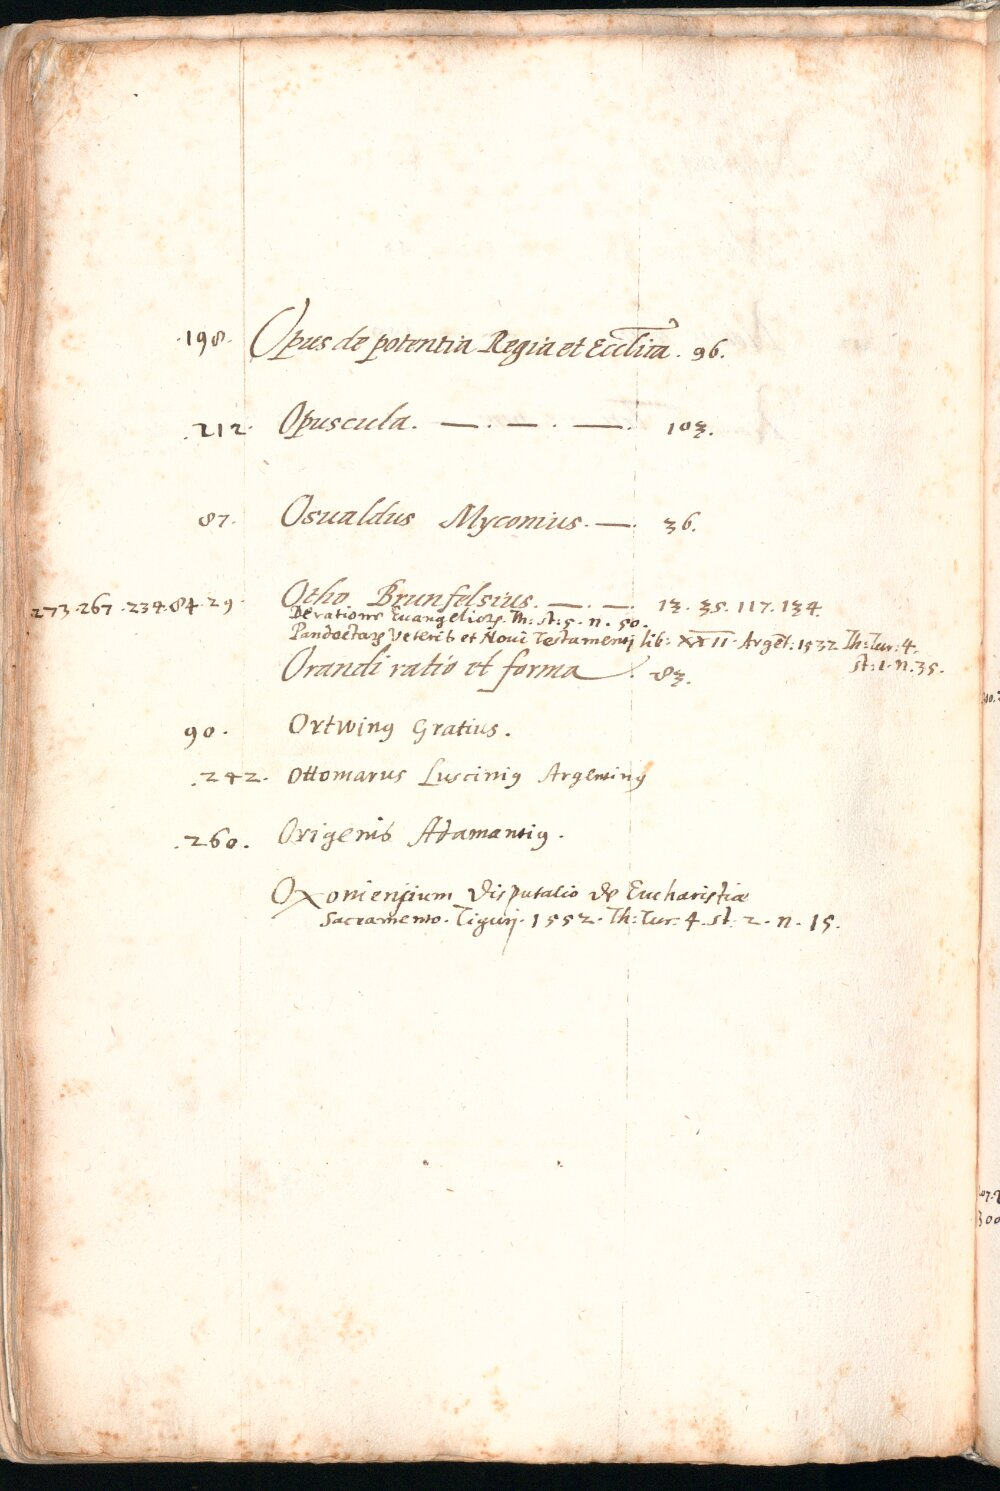 .198. Opus de potentia Regia et Eccl̃ita. 96.
.212. Opuscula. —. —. —. 103.
87. Osualdus Myconius. —. 36.
273.267.234.84.29. Otho Brunfelsius. —. —. 13. 35. 117. 134.
De ratione Euangelioꝝ. Th: st: 5. n. 50.
Pandectaꝝ Veteris et Noui Testamentj lib: XXII. Argēt: 1532 Th: Tur: 4.
st: 1. n. 35.
Orandi ratio et forma. 83.
90. Ortwinꝯ Gratius.
.242. Ottomarus Lusciniꝯ Argentinꝯ
.260. Origenis Adamantiꝯ.
Oxoniensium Disputatio de Eucharistiæ
Sacramento. Tigurj. 1552. Th: Tur: 4. st: 2. n. 15.